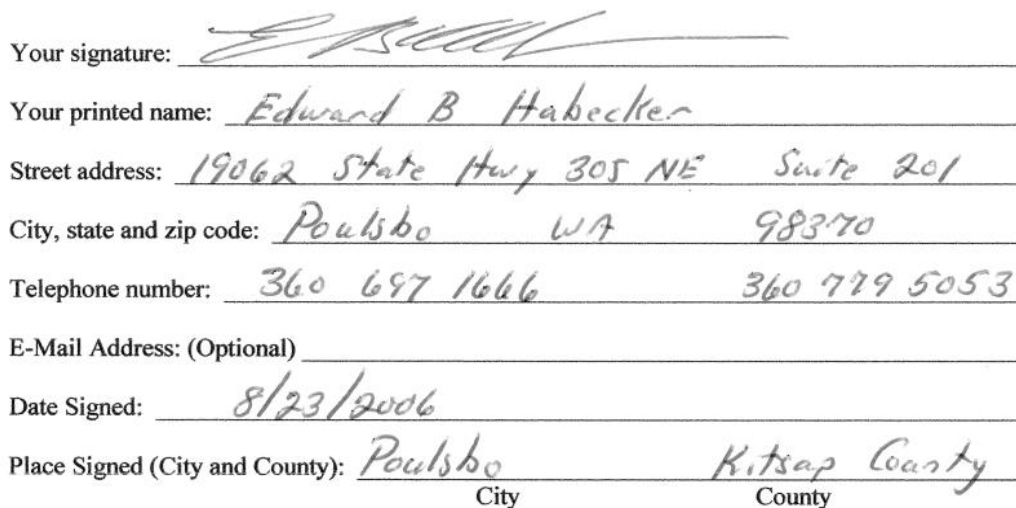 Your signature:
Your printed name: Edward B Habecker
Street address: 19062 State Hwy 305 NE Suite 201
City, state and zip code: Poulsbo WA 98370
Telephone number: 360 697 1666 360 779 5053
E-Mail Address: (Optional)
Date Signed: 8/23/2006
Place Signed (City and County): Poulsbo Kitsap County
City County